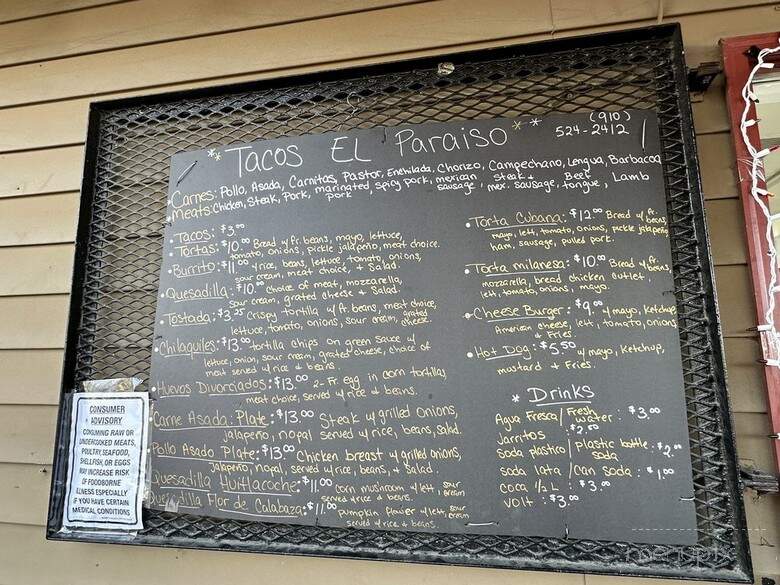 * Tacos El Paraiso * *
(910)
524-2412
• Carnes: Pollo, Asada, Carnitas, Pastor, Enchilada, Chorizo, Campechano, Lengua, Barbacoa
• Meats: Chicken, Steak, Pork, marinated pork, spicy pork, mexican sausage, Steak & mex. sausage, Beef tongue, Lamb
• Tacos: $3.00
• Tortas: $10.00 Bread w/ fr. beans, mayo, lettuce,
tomato, onions, pickle jalapeño, meat choice.
• Burrito: $11.00 w/ rice, beans, lettuce, tomato, onions,
sour cream, meat choice, & Salad.
• Quesadilla: $10.00 choice of meat, mozzarella,
sour cream, grated cheese & Salad.
• Tostada: $3.25 crispy tortilla w/ fr. beans, meat choice,
lettuce, tomato, onions, sour cream, grated cheese.
• Chilaquiles: $13.00 tortilla chips on green sauce w/
lettuce, onion, sour cream, grated cheese, choice of
meat served w/ rice & beans.
• Huevos Divorciados: $13.00 2- Fr. egg in corn tortillas,
meat choice, served w/ rice & beans.
Carne Asada Plate: $13.00 Steak w/ grilled onions,
jalapeño, nopal served w/ rice, beans, salad.
Pollo Asado Plate: $13.00 Chicken breast w/ grilled onions,
jalapeño, nopal, served w/ rice, beans, & Salad.
Quesadilla Huitlacoche: $11.00 corn mushroom w/ lett, sour cream
served w/ rice & beans.
Quesadilla Flor de Calabaza: $11.00 pumpkin flower w/ lett, sour cream
served w/ rice & beans.
• Torta Cubana: $12.00 Bread w/ fr. beans,
mayo, lett, tomato, onions, pickle jalapeño,
ham, sausage, pulled pork.
• Torta milanesa: $10.00 Bread w/ fr. beans,
mozzarella, bread chicken cutlet,
lett, tomato, onions, mayo.
• Cheese Burger: $9.00 w/ mayo, ketchup,
American cheese, lett, tomato, onions
& Fries.
• Hot Dog: $5.50 w/ mayo, ketchup,
mustard & Fries.
* Drinks
Agua Fresca/Fresh water: $3.00
Jarritos: $2.50
soda plastico/plastic bottle soda: $2.00
soda lata/can soda: $1.00
coca 1/2 L: $3.00
Volt: $3.00
CONSUMER
ADVISORY
CONSUMING RAW OR
UNDERCOOKED MEATS,
POULTRY, SEAFOOD,
SHELLFISH, OR EGGS
MAY INCREASE RISK
OF FOODBORNE
ILLNESS ESPECIALLY
IF YOU HAVE CERTAIN
MEDICAL CONDITIONS
menupix